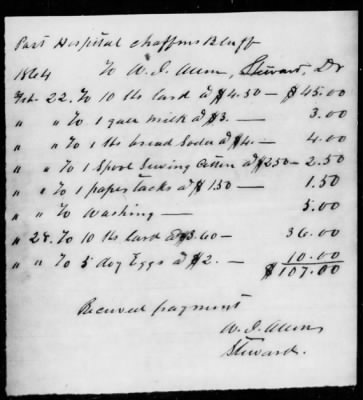 Post Hospital Chaffins Bluff
1864 To W. J. Allen, Steward, Dr
Feb. 22. To 10 lbs lard at $4.50 — $45.00
" " To 1 gall milk at $3. — 3.00
" " To 1 lb bread Soda at $4. — 4.00
" " To 1 Spool Sewing Cotton at $2.50 - 2.50
" " To 1 paper tacks at $1.50 — 1.50
" " To Washing — 5.00
" 28. To 10 lbs lard at $3.60 — 36.00
" " To 5 doz Eggs at $2. — 10.00
$107.00
Received payment
W. J. Allen
Steward.